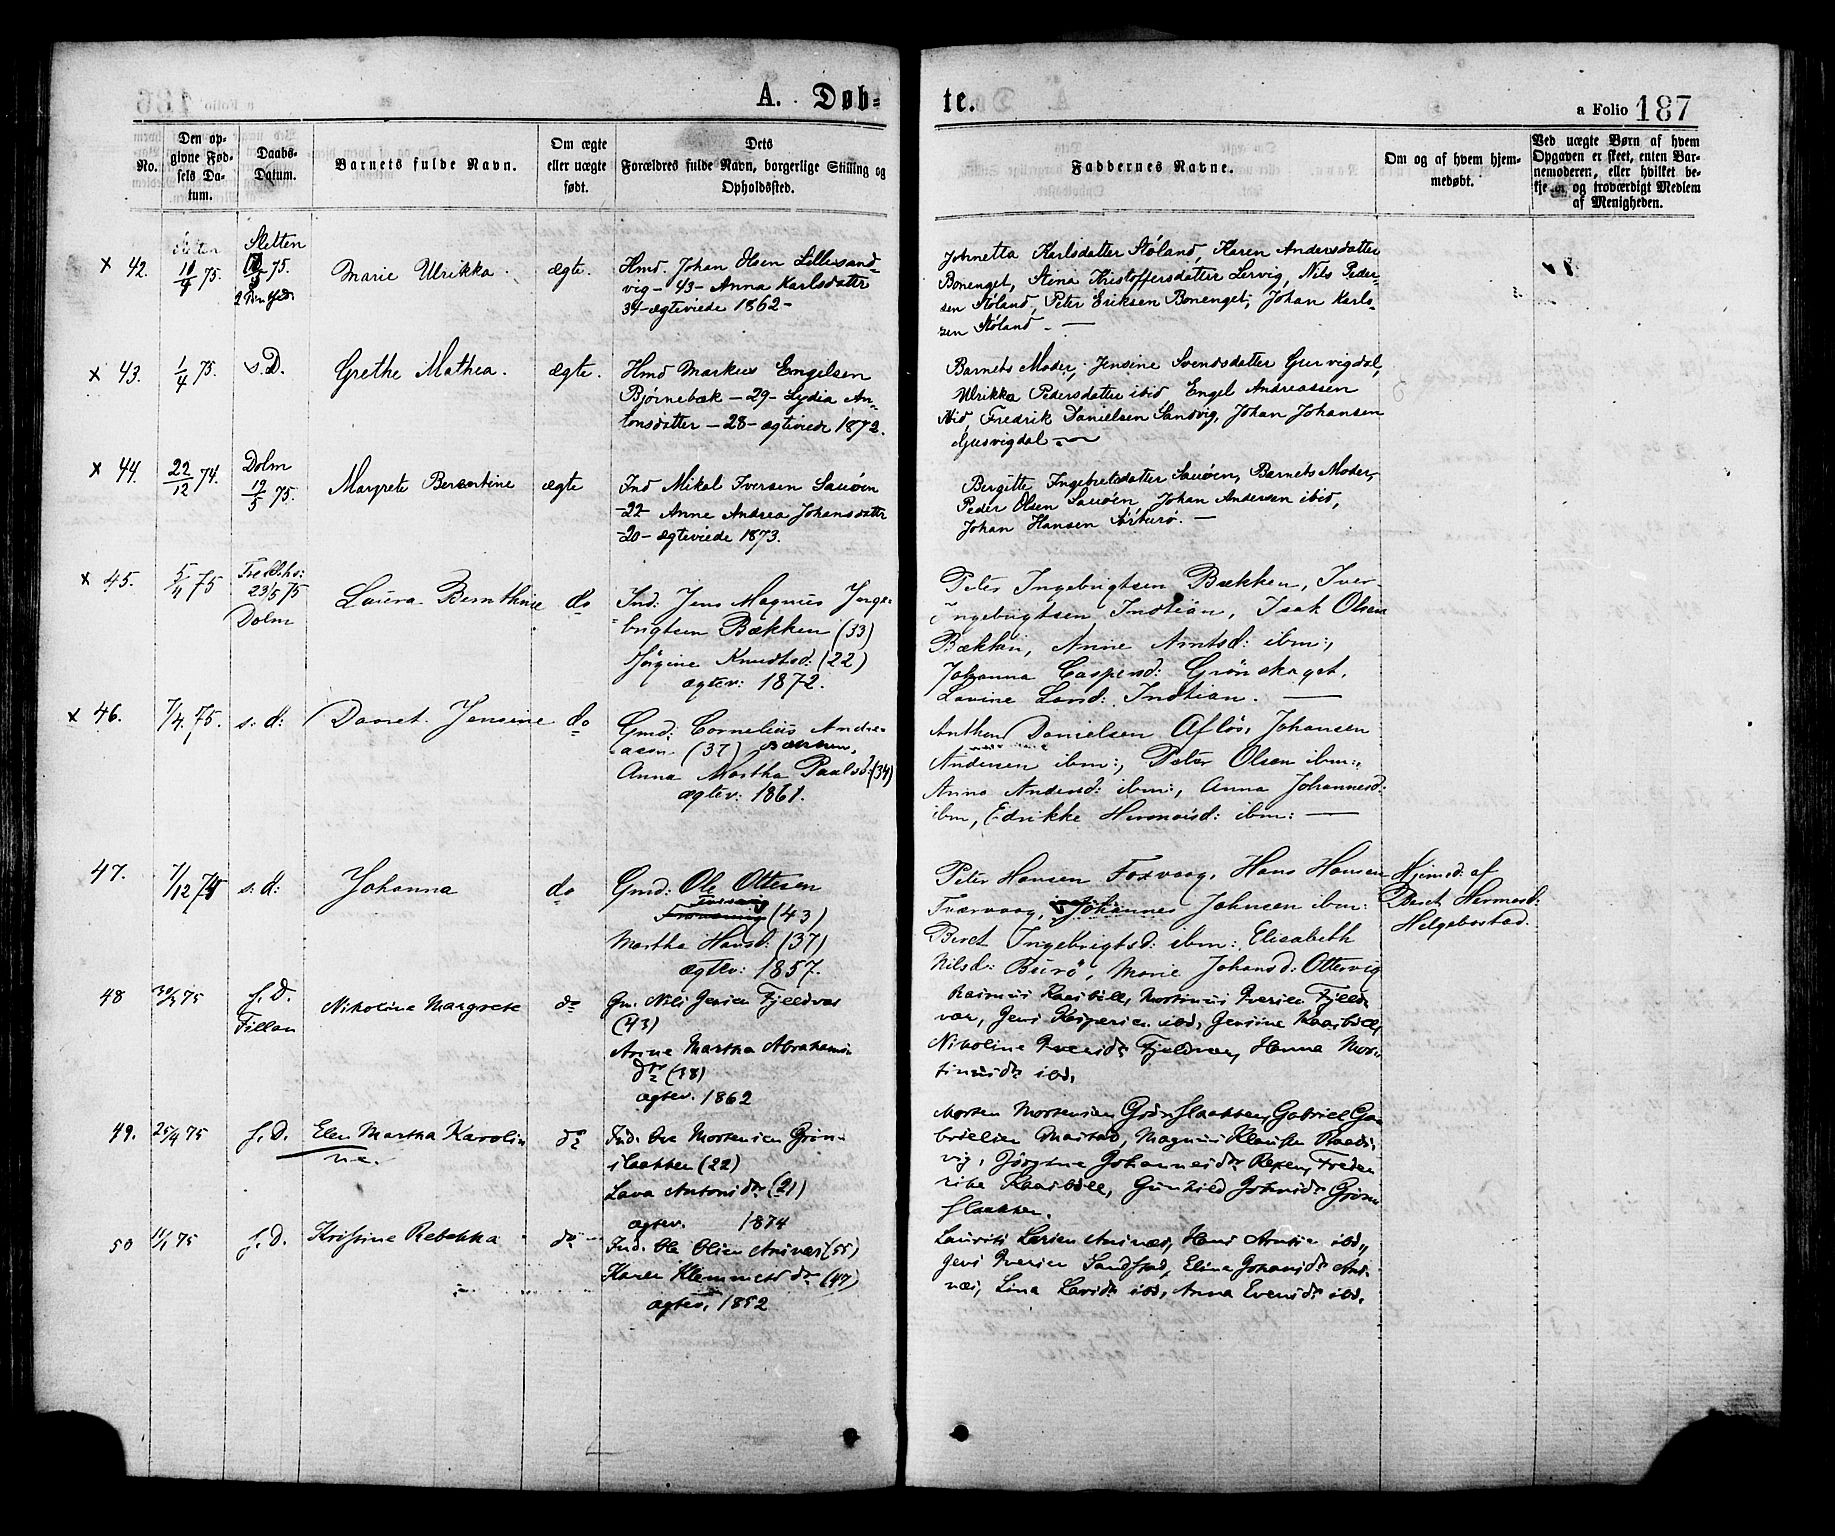 A. Døb-
te.
a Folio 187
No.
Den op-
givne Fød-
sels Da-
tum.
Daabs-
Datum.
Barnets fulde Navn.
Om ægte
eller uægte
født.
Dets
Forældres fulde Navn, borgerlige Stilling og
Opholdssted.
Faddernes Navne.
Om og af hvem hjem-
medøbt.
Ved uægte Børn af hvem
Opgaven er skeet, enten Bar-
nemoderen, eller hvilket be-
kje og troværdigt Medlem
af Menigheden.
Sletten
x 42. 10/4 75.
75.
Marie Ulrikka.
ægte.
Hmd. Johan Olsen Lillesand-
vig - 43 - Anna Karlsdatter
34 - ægteviede 1862 -
Johnetta Karlsdatter Støland, Karen Andersdatter
Bonenget, Stina Kristoffersdatter Lervig, Nils Peder-
sen Støland, Peter Eriksen Bonenget, Johan Karls-
sen Støland. -
x 43. 1/4 75. s.D. Grethe Mathea. ægte.
Hmd Markus Engelsen
Bjørnebæk - 29 - Lydia An-
tonsdatter - 28 - ægteviede 1872.
Barnets Moder, Jensine Svendsdatter Gusvigdal,
Ulrikka Pedersdatter ibid, Engel Andreassen
ibid, Fredrik Danielsen Sandvig, Johan Johansen
Gusvigdal -
x 44. 22/12 74. Dolm
19/5 75.
Margrete Berentine ægte
Ind Mikal Iversen Sauøen
-22- Anne Andrea Johansdatter
-20- ægteviede 1873.
Bergitte Ingebretsdatter Sauøen, Barnets Moder,
Peder Olsen Sauøen, Johan Andersen ibid,
Johan Hansen
x 45. 5/4 75
23/5 75
Dolm
Laura Bernthine do
Ind: Jens Magnus Inge-
brigtsen Bækken (33)
Jørgine Knudtsd: (22)
ægtev: 1872.
Peter Ingebrigtsen Bækken, Iver
Ingebrigtsen Indtian, Isak Olsen
Bækken, Anne Arntsd: ibm:,
Johanna Caspersd: Grønskaget,
Lovine Indtian. -
x 46. 7/4 75. s: d: Daaret Jensine do
Gmd: Cornelius Andre-
asen (37)
Anna Martha Paulsd: (34)
ægtev: 1861.
Anthon Danielsen Afløs, Johansen
Andersen ibm:, Peter Olsen ibm:,
Anna Andersd: ibm:, Anna Johannesd:
ibm, Edrikke ibm: -
47. 7/12 74 s: d: Johanna do
Gmd: Ole Ottesen
(43)
Martha Hansd: (37)
ægtev: 1857.
Peter Hansen Foxvaag, Hans Hansen
Tværvaag, Johannes Johnsen ibm:
Beret Ingebrigtsd: ibm: Elisabeth
Nilsd: Burø, Marie Johansd: Ottervig
Hjemd: af
Beret Hermosd:
Helgebostad.
48 75 s. D.
Fillan
Nikoline Margrete do
Gm. Nils Jensen Fjeldvær
(43)
Anne Martha Abrahams-
dtr (38)
ægtev. 1862
Rasmus Kaasbøll, Mortinus Iversen Fjeld-
vær, Jens Kaspersen ibd, Jensine Kaasbøll,
Nikoline Iversdr Fjeldvær, Hanna Mor-
tinusdr ibd.
49. 25/4 75 s. D. Elen Martha Karolin-
ne.
do
Ind. Ole Mortensen Grøn-
slætten (22)
Lava Antonsdr (21)
ægtev. 1874
Morten Mortensen Grønslætten, Gabriel Ga-
brielsen Mastad, Magnus Klausen
vig, Jørgine Johannesdr Frede-
rike Kaasbøll, Gunhild Johnsdr Grøn-
slætten.
50 11/1 75 s. D. Kristine Rebekka do
Ind. Ole Olsen Ansnæs (55)
Karen Klemmetsdr (47)
ægtev. 1852
Laurits Larsen Ansnæs, Hans ibd.,
Jens Iversen Sandstad, Elina Johansdr Ans-
næs, Lina ibd, Anna Evensdr ibd.